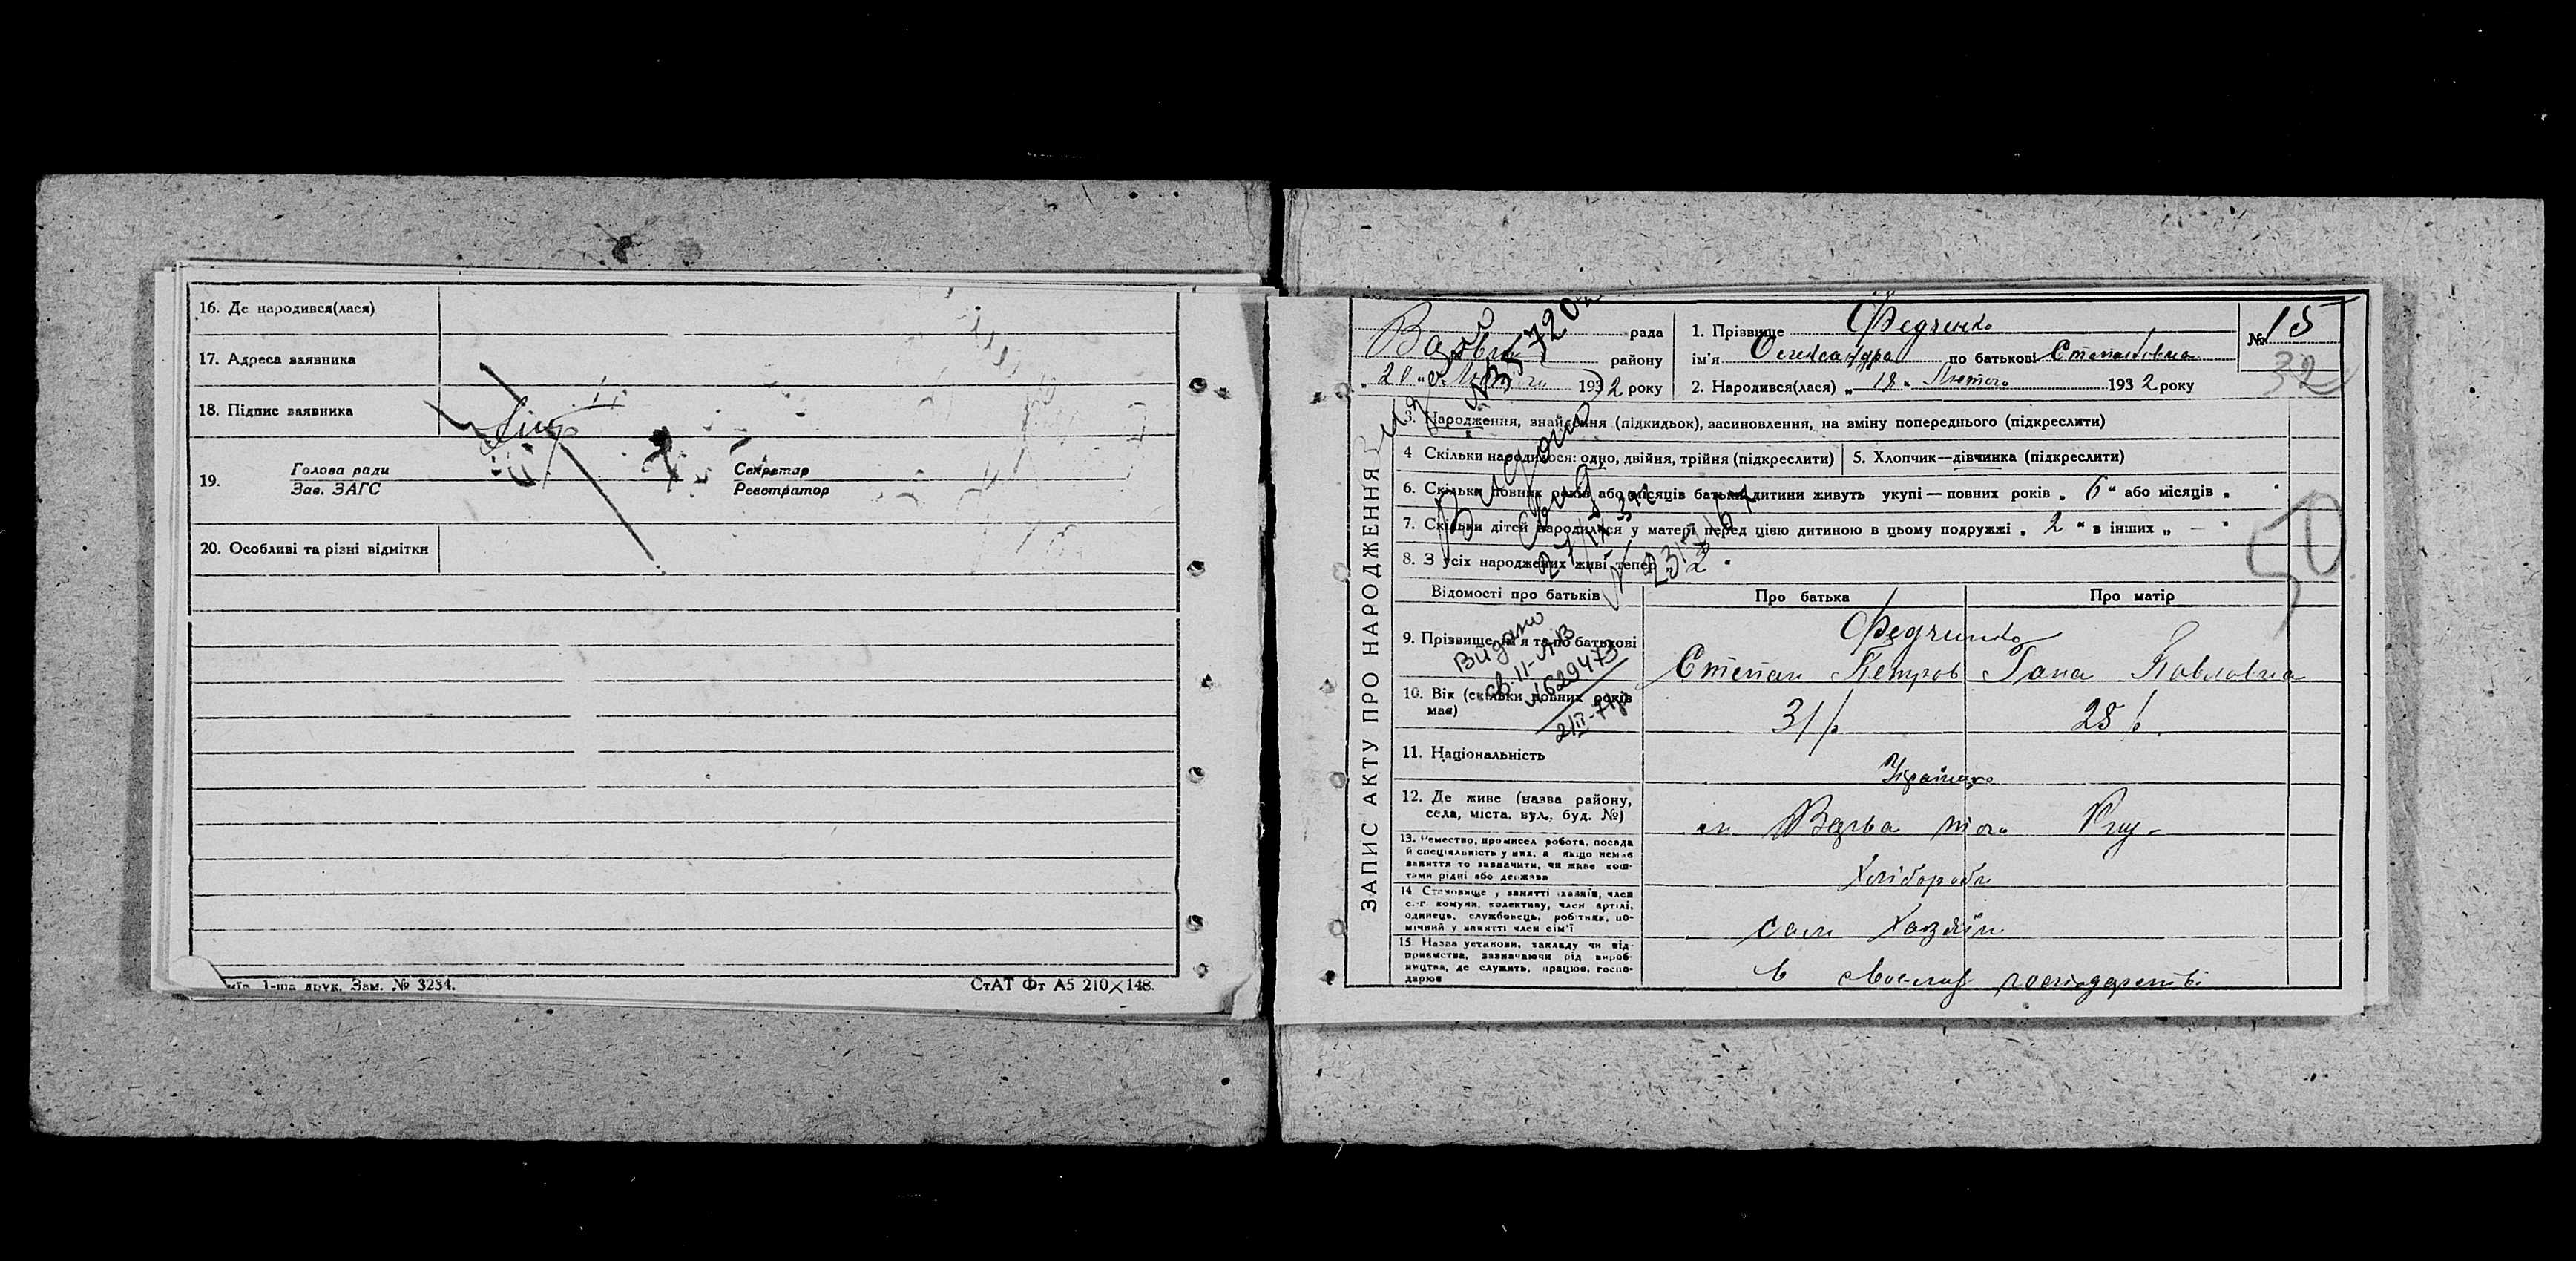 16. Де народився(лася)
17. Адреса заявника
18. Підпис заявника
19. Голова ради
Зав. ЗАГС
Секретар
Реєстратор
20. Особливі та різні відмітки
1-ша друк. Зам. № 3234.
СтАТ Фт А5 210×148.
ЗАПИС АКТУ ПРО НАРОДЖЕННЯ
рада
району
"20" 1932 року
1. Прізвище Федченко
ім'я Олександра по батькові Степановна
2. Народився(лася) "18" Лютого 1932 року
№ 15
32
50
3. Народження, знайдення (підкидьок), засиновлення, на зміну попереднього (підкреслити)
4 Скільки народилося: одно, двійня, трійня (підкреслити)
5. Хлопчик—дівчинка (підкреслити)
6. Скільки повних років або місяців батьки дитини живуть укупі — повних років „ 6 " або місяців „ "
7. Скільки дітей народилася у матері перед цією дитиною в цьому подружжі „ 2 " в інших „ — "
8. З усіх народжених живі тепер
Відомості про батьків
Про батька
Про матір
9. Прізвище, ім'я та по батькові
Федченко
Степан Петров
Гана Павловна
10. Вік (скільки повних років має)
31 р
28 р.
11. Національність
12. Де живе (назва району,
села, міста, вул., буд. №)
13. Ремество, промисел робота, посада
й спеціяльність у них, а якщо немає
заняття то зазначити, чи живе кош-
тами рідні або держава
Хлібороби
14. Становище у занятті хазяїн, член
с.-г. комуни, колективу, член артілі,
одинець, службовець, робітник, по-
мічний у занятті член сім'ї
сам Хазяїн
15 Назва установи, закладу чи під-
приємства, зазначаючи рід вироб-
ництва, де служить, працює, госпо-
дарює
в своєму господарстві
Видано
Видано
св. II-ЛВ
№629473
2/II-71р